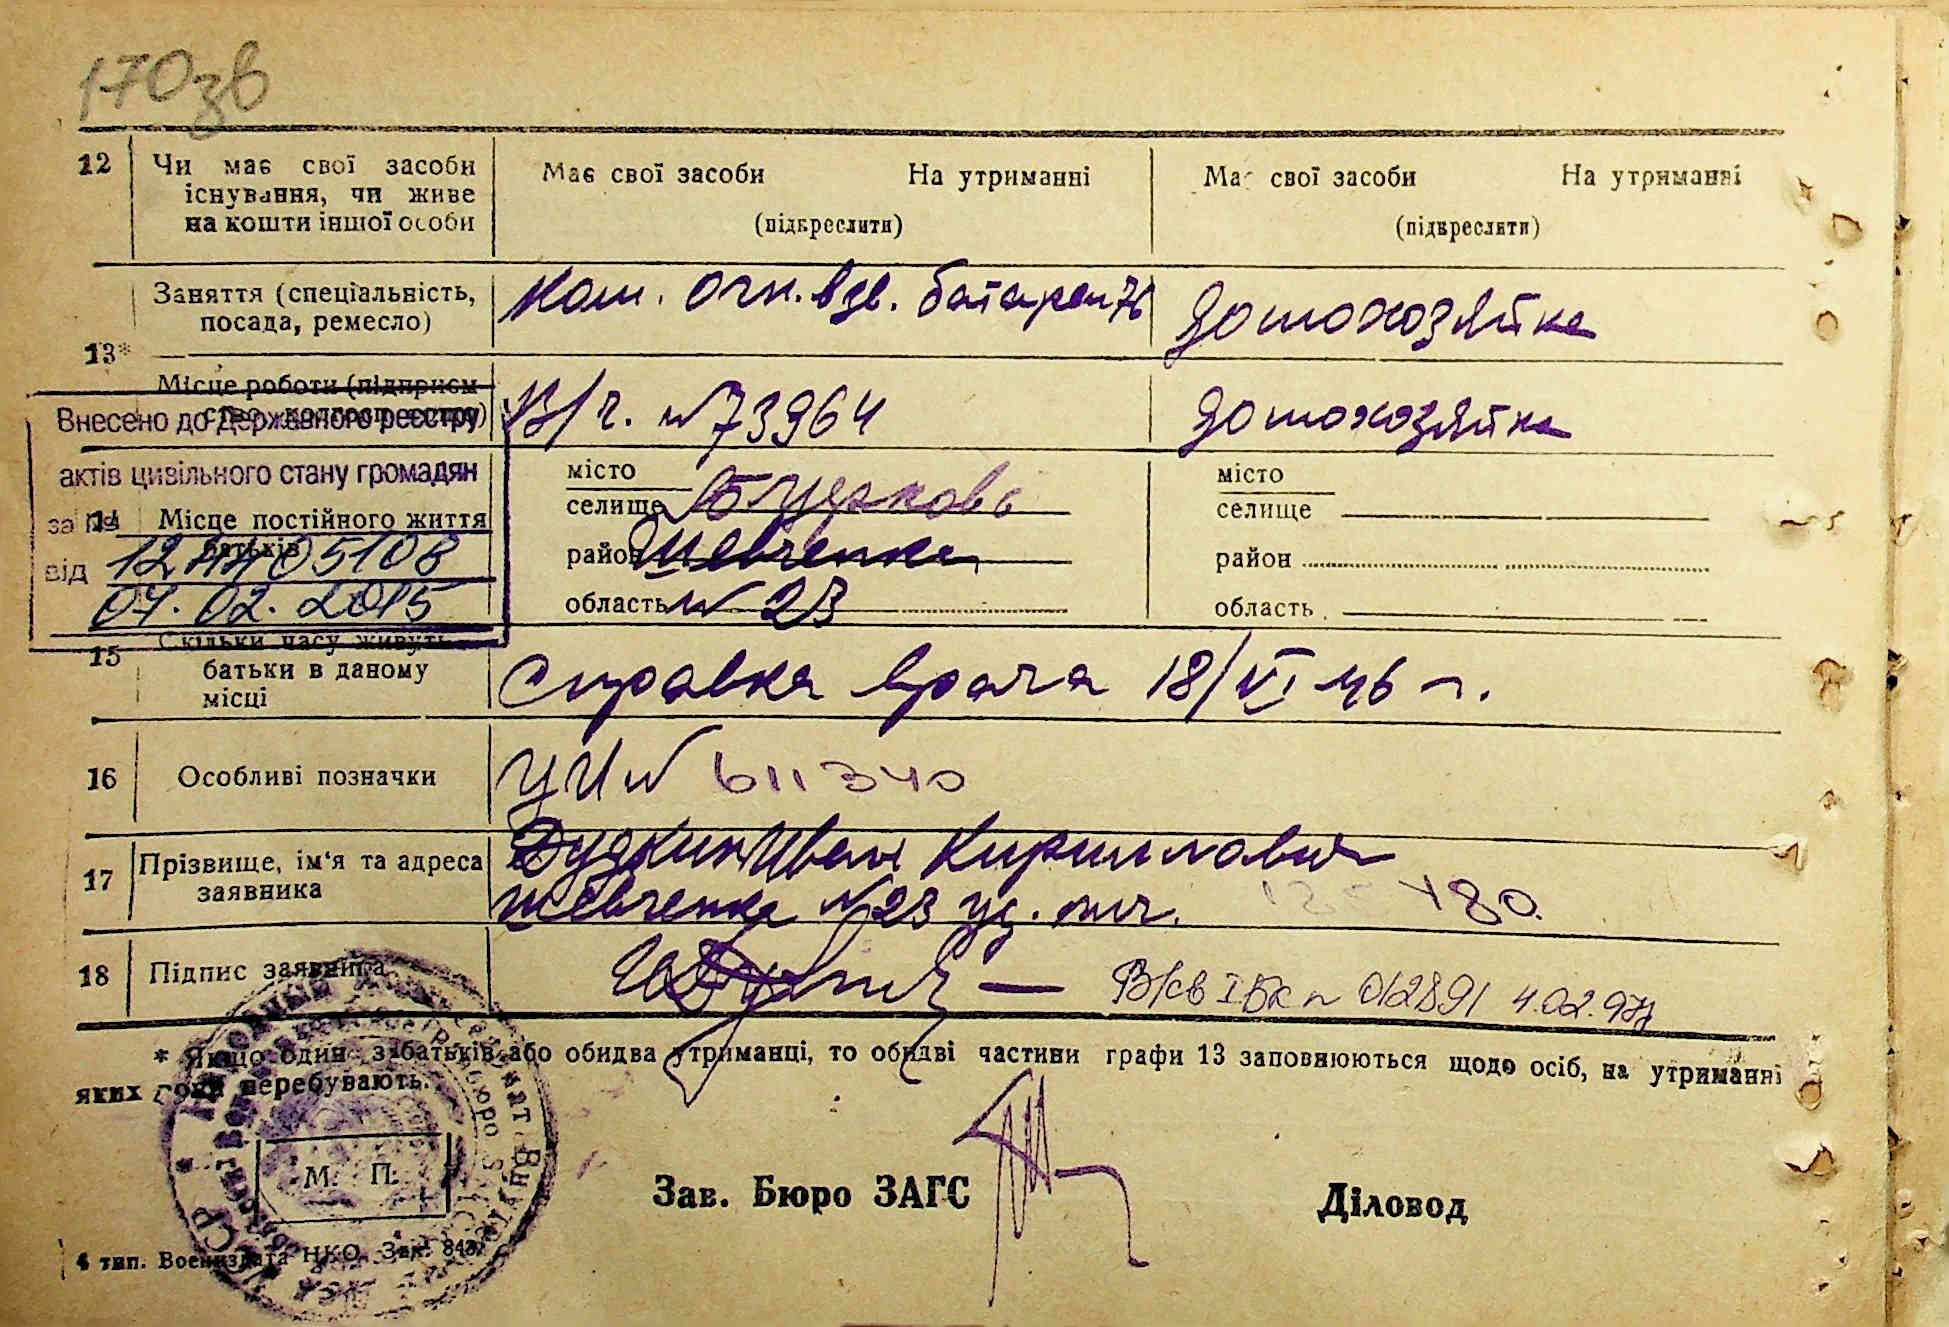 170зв
12 Чи має свої засоби існування, чи живе на кошти іншої особи
Має свої засоби На утриманні
(підкреслити)
Має свої засоби На утриманні
(підкреслити)
13*
Заняття (спеціальність, посада, ремесло)
Ком. огн. взв. батареи 76
домохозяйка
Місце роботи (підприєм
В/ч. №73964
домохозяйка
Внесено до Державного реєстру
актів цивільного стану громадян
за №
від
04.02.2015
14 Місце постійного життя батьків
місто
селище
район Шевченка
область № 23
місто
селище
район
область
15 Скільки часу живуть батьки в даному місці
Справка врача 18/VI 46 г.
16 Особливі позначки
УИ № 611340
17 Прізвище, ім'я та адреса заявника
Дудкин Иван Кириллович
Шевченка № 23
180.
18 Підпис заявника
012891 4.02.97
* Якщо один з батьків або обидва утриманці, то обидві частини графи 13 заповнюються щодо осіб, на утриманні
яких вони перебувають.
М. П.
Зав. Бюро ЗАГС
Діловод
4 тип. Воениздата НКО. Зак. 843